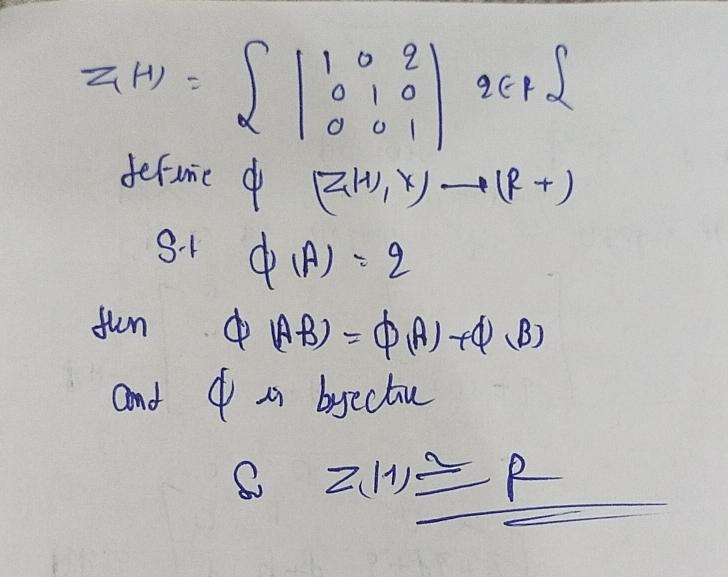 Z(H) = { | 1 0 2 | 2 ∈ R }
0 1 0
0 0 1
define ϕ (Z(H), x) → (R +)
S.t ϕ(A) = 2
then ϕ(AB) = ϕ(A) + ϕ(B)
and ϕ is byective
So Z(H) ≅ R